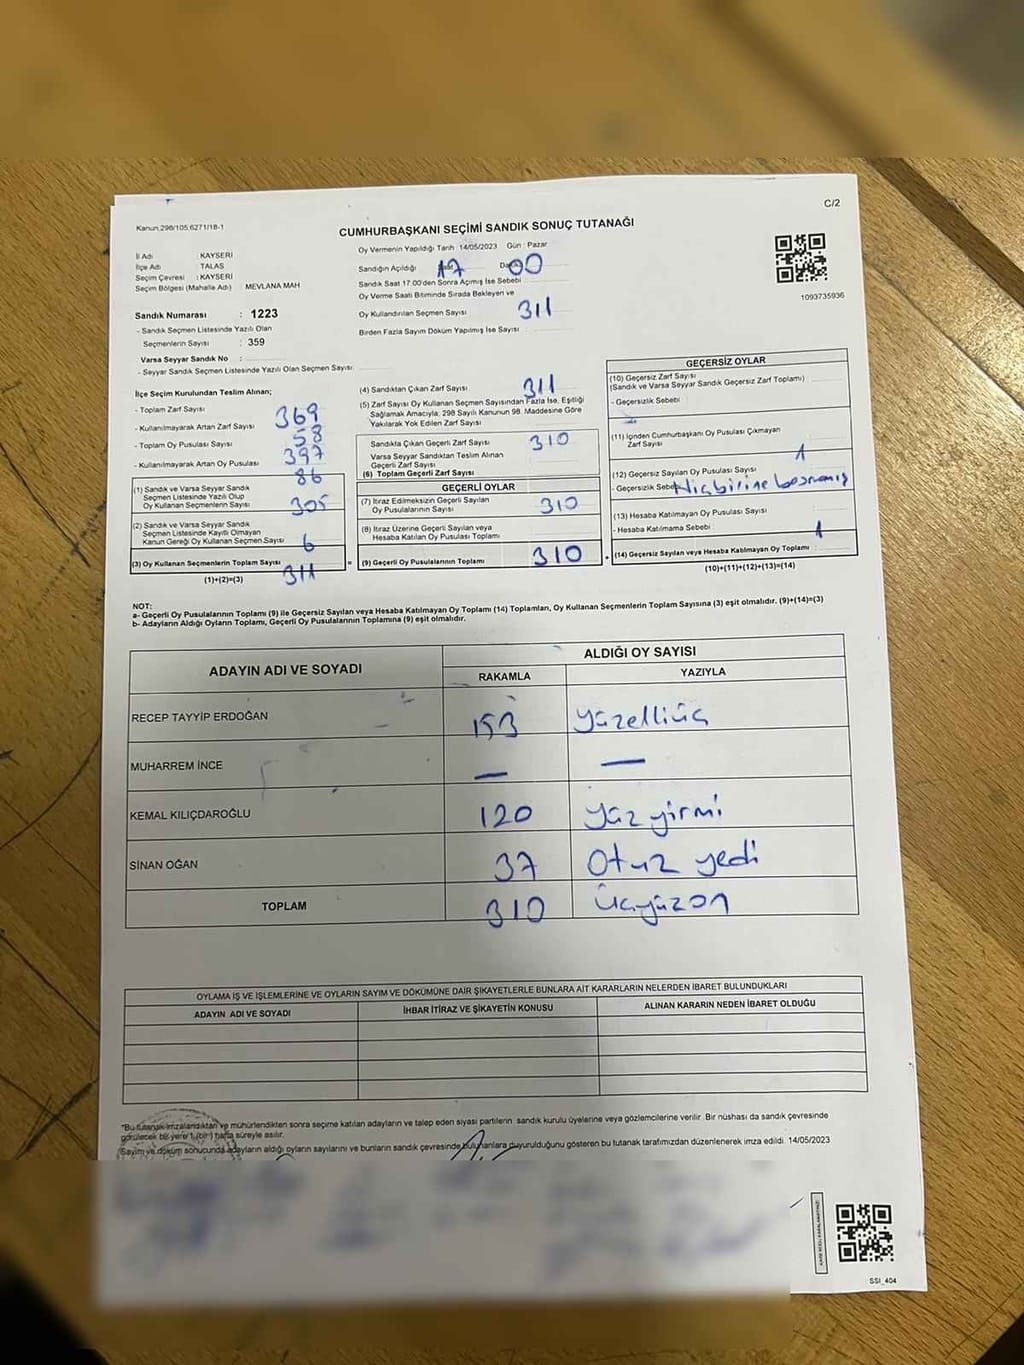 C/2
Kanun,298/105;6271/18-1
CUMHURBAŞKANI SEÇİMİ SANDIK SONUÇ TUTANAĞI
İl Adı : KAYSERİ
İlçe Adı : TALAS
Seçim Çevresi : KAYSERİ
Seçim Bölgesi (Mahalle Adı) : MEVLANA MAH
Sandık Numarası : 1223
- Sandık Seçmen Listesinde Yazılı Olan
Seçmenlerin Sayısı : 359
Varsa Seyyar Sandık No :
- Seyyar Sandık Seçmen Listesinde Yazılı Olan Seçmen Sayısı
Oy Vermenin Yapıldığı Tarih :14/05/2023 Gün : Pazar
Sandığın Açıldığı Saat 17 Dakika 00
Sandık Saat 17.00'den Sonra Açılmış İse Sebebi
Oy Verme Saati Bitiminde Sırada Bekleyen ve
Oy Kullandırılan Seçmen Sayısı 311
Birden Fazla Sayım Döküm Yapılmış İse Sayısı
1093735936
İlçe Seçim Kurulundan Teslim Alınan;
- Toplam Zarf Sayısı 369
- Kullanılmayarak Artan Zarf Sayısı 58
- Toplam Oy Pusulası Sayısı 397
- Kullanılmayarak Artan Oy Pusulası 86
(1) Sandık ve Varsa Seyyar Sandık
Seçmen Listesinde Yazılı Olup
Oy Kullanan Seçmenlerin Sayısı 305
(2) Sandık ve Varsa Seyyar Sandık
Seçmen Listesinde Kayıtlı Olmayan
Kanun Gereği Oy Kullanan Seçmen Sayısı 6
(3) Oy Kullanan Seçmenlerin Toplam Sayısı 311
(1)+(2)=(3)
(4) Sandıktan Çıkan Zarf Sayısı 311
(5) Zarf Sayısı Oy Kullanan Seçmen Sayısından Fazla İse, Eşitliği
Sağlamak Amacıyla; 298 Sayılı Kanunun 98. Maddesine Göre
Yakılarak Yok Edilen Zarf Sayısı
Sandıkta Çıkan Geçerli Zarf Sayısı 310
Varsa Seyyar Sandıktan Teslim Alınan
Geçerli Zarf Sayısı
(6) Toplam Geçerli Zarf Sayısı
GEÇERLİ OYLAR
(7) İtiraz Edilmeksizin Geçerli Sayılan
Oy Pusulalarının Sayısı 310
(8) İtiraz Üzerine Geçerli Sayılan veya
Hesaba Katılan Oy Pusulası Toplamı
= (9) Geçerli Oy Pusulalarının Toplamı 310 +
GEÇERSİZ OYLAR
(10) Geçersiz Zarf Sayısı
(Sandık ve Varsa Seyyar Sandık Geçersiz Zarf Toplamı)
- Geçersizlik Sebebi
(11) İçinden Cumhurbaşkanı Oy Pusulası Çıkmayan
Zarf Sayısı
(12) Geçersiz Sayılan Oy Pusulası Sayısı 1
- Geçersizlik Sebebi Hiçbirine basmamış
(13) Hesaba Katılmayan Oy Pusulası Sayısı
- Hesaba Katılmama Sebebi
(14) Geçersiz Sayılan veya Hesaba Katılmayan Oy Toplamı 1
(10)+(11)+(12)+(13)=(14)
NOT:
a- Geçerli Oy Pusulalarının Toplamı (9) ile Geçersiz Sayılan veya Hesaba Katılmayan Oy Toplamı (14) Toplamları, Oy Kullanan Seçmenlerin Toplam Sayısına (3) eşit olmalıdır. (9)+(14)=(3)
b- Adayların Aldığı Oyların Toplamı, Geçerli Oy Pusulalarının Toplamına (9) eşit olmalıdır.
ADAYIN ADI VE SOYADI
ALDIĞI OY SAYISI
RAKAMLA YAZIYLA
RECEP TAYYİP ERDOĞAN 153 yüzelliüç
MUHARREM İNCE — —
KEMAL KILIÇDAROĞLU 120 yüz yirmi
SİNAN OĞAN 37 Otuz yedi
TOPLAM 310 üçyüzon
OYLAMA İŞ VE İŞLEMLERİNE VE OYLARIN SAYIM VE DÖKÜMÜNE DAİR ŞİKAYETLERLE BUNLARA AİT KARARLARIN NELERDEN İBARET BULUNDUKLARI
ADAYIN ADI VE SOYADI İHBAR İTİRAZ VE ŞİKAYETİN KONUSU ALINAN KARARIN NEDEN İBARET OLDUĞU
*Bu tutanak imzalandıktan ve mühürlendikten sonra seçime katılan adayların ve talep eden siyasi partilerin sandık kurulu üyelerine veya gözlemcilerine verilir. Bir nüshası da sandık çevresinde
görülecek bir yere 1 (bir) hafta süreyle asılır.
Sayım ve döküm sonucunda adayların aldığı oyların sayılarını ve bunların sandık çevresinde bulunanlara duyurulduğunu gösteren bu tutanak tarafımızdan düzenlenerek imza edildi. 14/05/2023
SSI_404